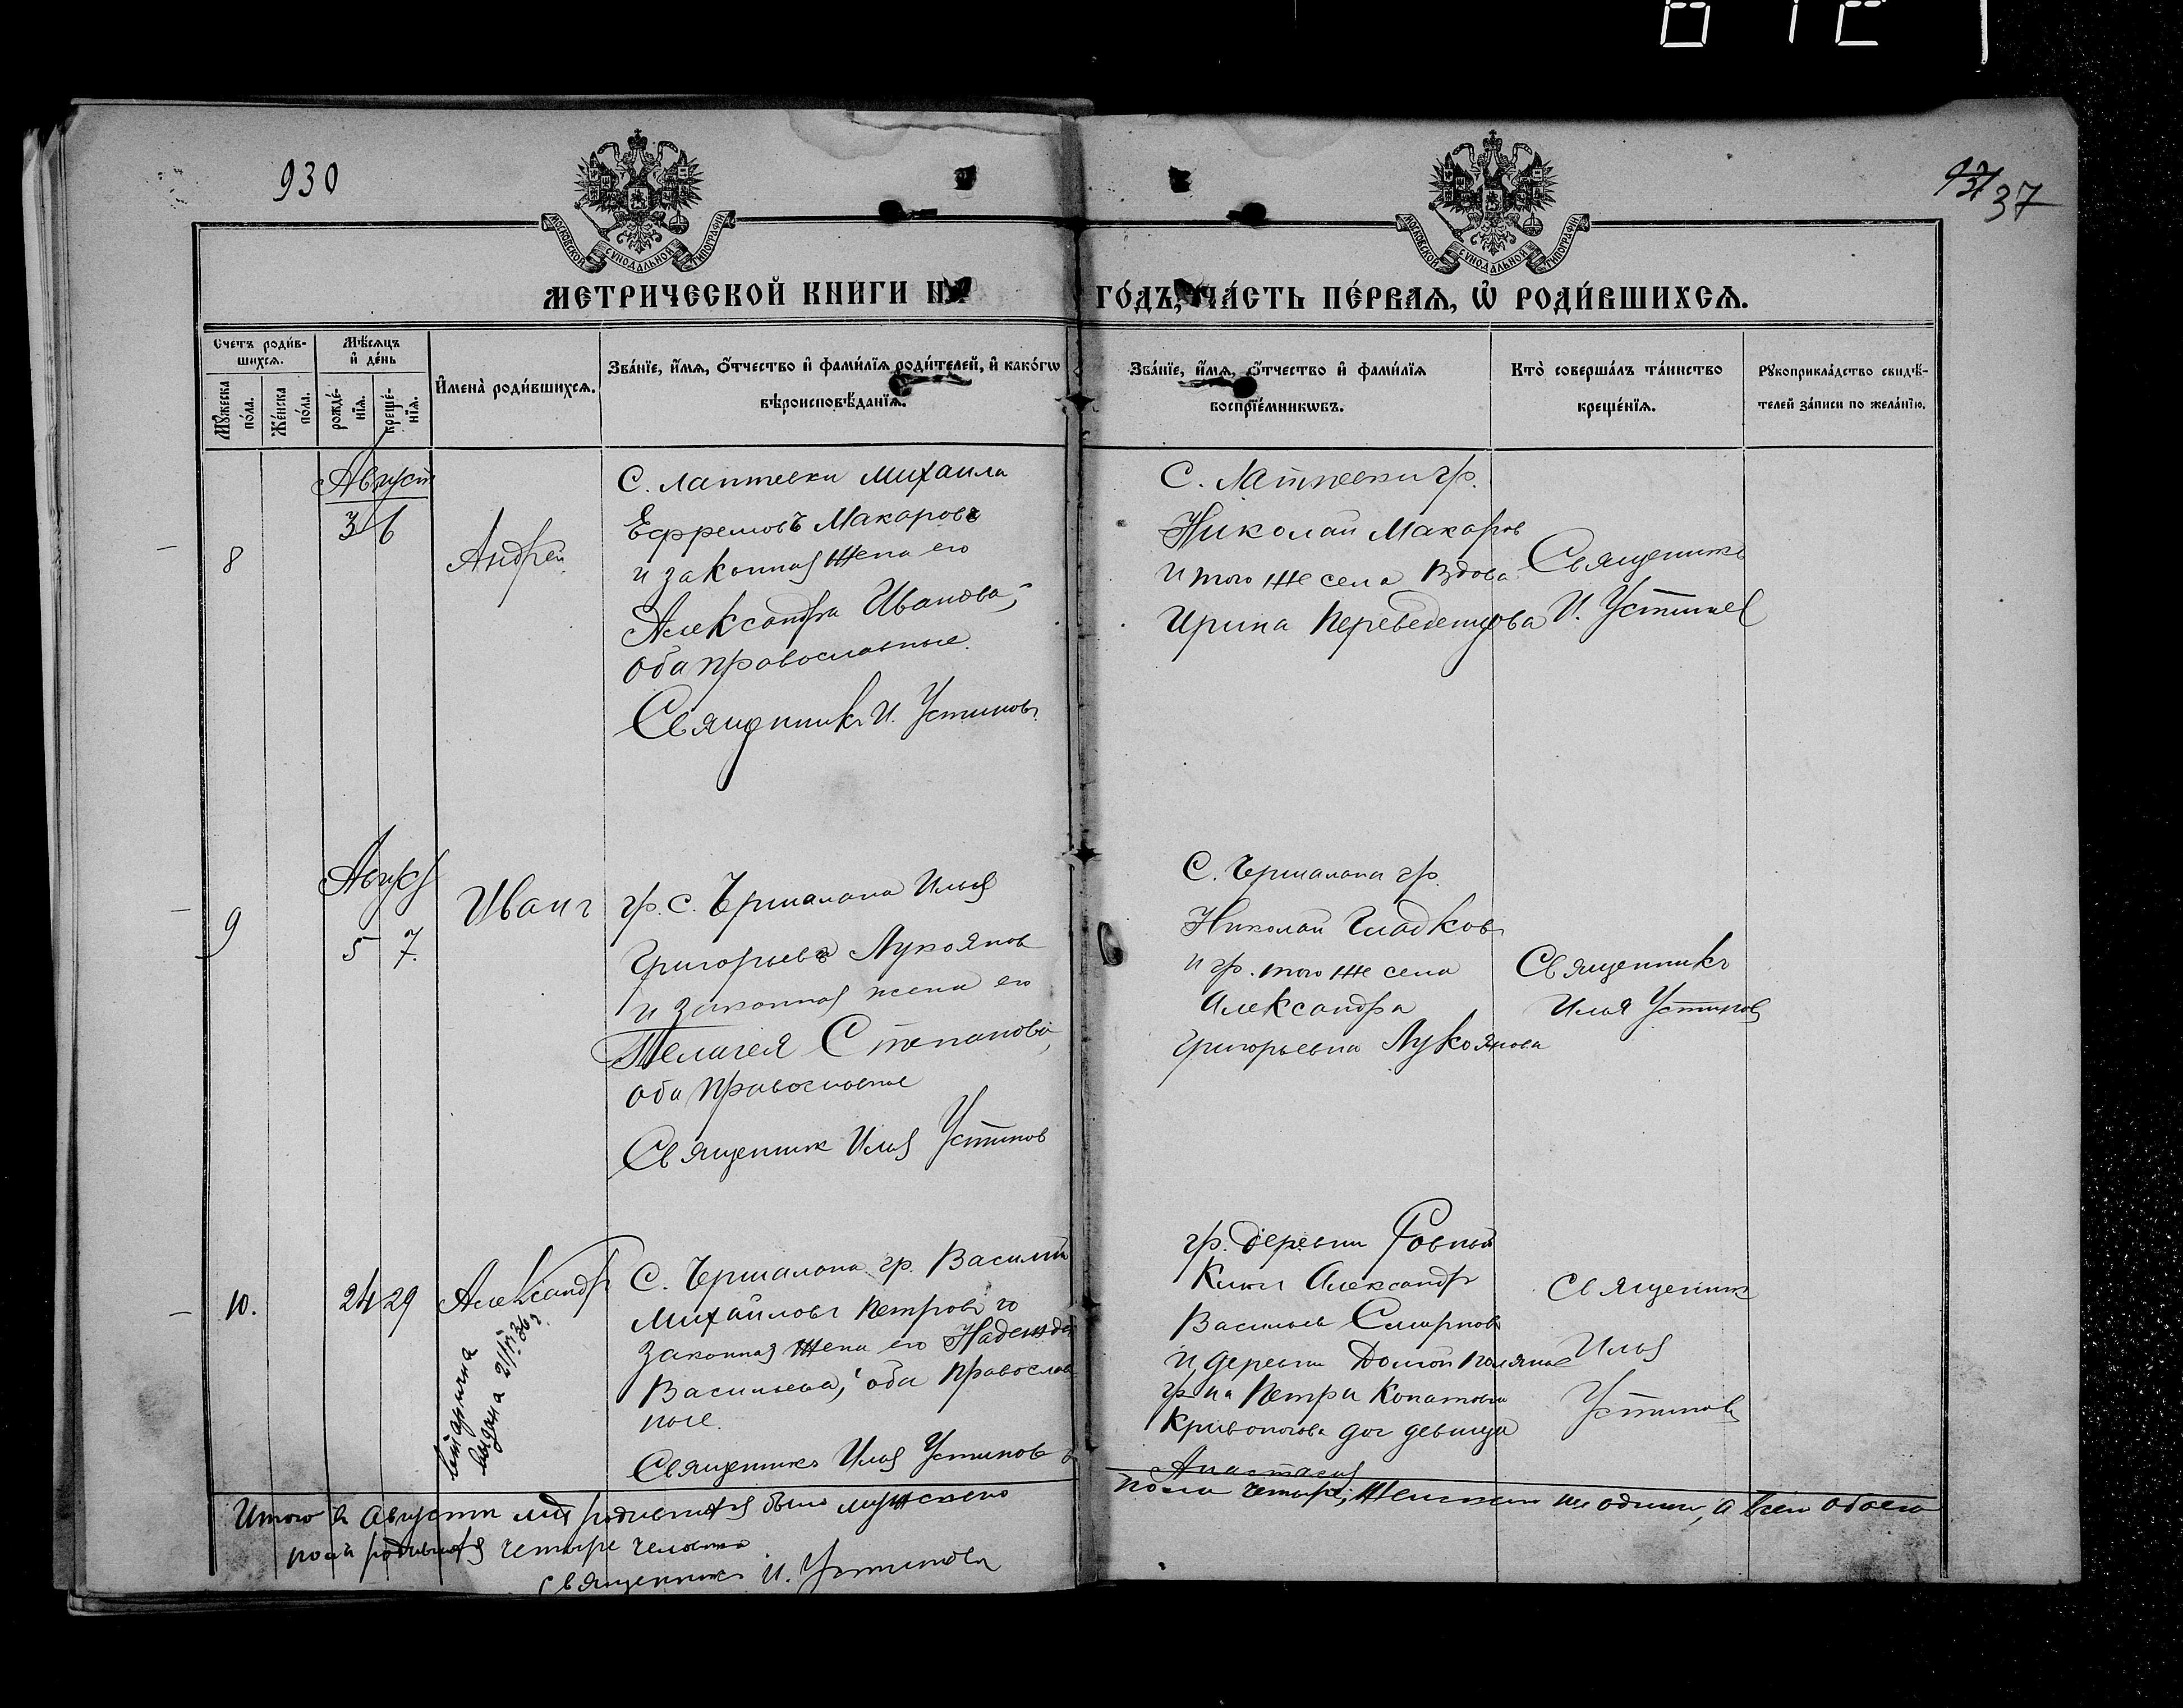 930
37
МОСКОВСКОЙ СѴНОДАЛЬНОЙ ТИПОГРАФІИ
МОСКОВСКОЙ СѴНОДАЛЬНОЙ ТИПОГРАФІИ
МЕТРИЧЕСКОЙ КНИГИ НА ГО́ДЪ, ЧА́СТЬ ПЕ́РВАѦ, Ѽ РОДИ́ВШИХСѦ.
Счетъ роди́в-
шихсѧ.
Мѣ́сѧцъ
и҆ де́нь
Мꙋ́жеска
по́ла.
Же́нска
по́ла.
рожде́-
нїѧ.
креще́-
нїѧ.
И҆мена̀ роди́вшихсѧ.
Зва́нїе, и҆́мѧ, ѻ҆́тчество и҆ фами́лїѧ роди́телей, и҆ како́гѡ
вѣроисповѣ́данїѧ.
Зва́нїе, и҆́мѧ, ѻ҆́тчество и҆ фами́лїѧ
воспрїе́мникѡвъ.
Кто̀ соверша́лъ та́инство
креще́нїѧ.
Рꙋкоприкла́дство свидѣ́-
телей за́писи по жела́нїю.
Август
8
3 6
Андрей
С. Лаптевки Михаила
Ефремовъ Макаровъ
и законная жена его
Александра Иванова,
оба православные.
Священникъ И. Устиновъ.
С. Лаптевки гр.
Николай Макаров
и того же села вдова
Ирина Переведенцова
Священникъ
И. Устинов
Август
9
5 7.
Иванъ
гр. с. Ершалана Илья
Григорьевъ Лукоянов
и законная жена его
Пелагея Степанова,
оба православные
Священник Илья Устинов
С. Ершалана гр.
Николай Гладков
и гр. того же села
Александра
Григорьевна Лукоянова
Священникъ
Илья Устинов
10.
24 29
Александр
выдана
С. Ершалана гр. Василий
Михайловъ Петровъ
законная жена его Надежда
Васильева, оба православ
ные.
Священникъ Илья Устинов
гр. деревни Ровный
Ключ Александр
Васильев Смирновъ
и деревни Долгой Поляны
гр на Петра
Кривоногова доч девица
Анастасия
Священник
Илья
Устинов
Итого в Августе м-це родившихся было мужского
пола четыре, женского ни одного, а всего обоего
пола родившихся четыре человека
Священник И. Устинов